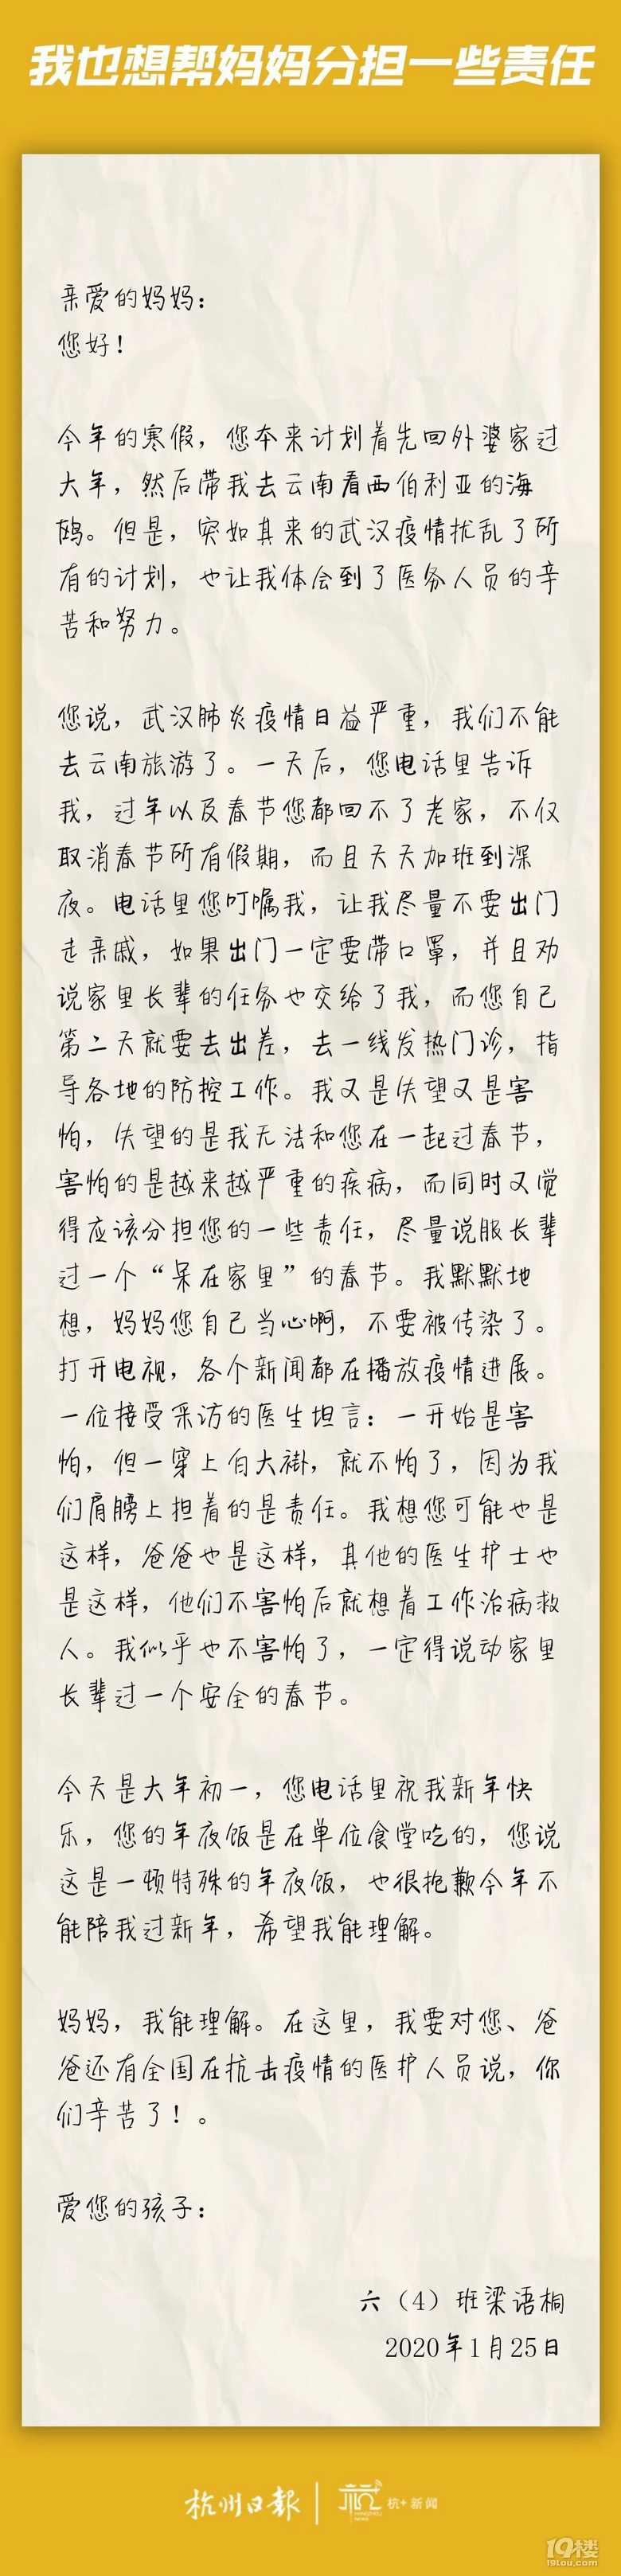 我也想帮妈妈分担一些责任
亲爱的妈妈：
您好！
今年的寒假，您本来计划着先回外婆家过
大年，然后带我去云南看西伯利亚的海
鸥。但是，突如其来的武汉疫情扰乱了所
有的计划，也让我体会到了医务人员的辛
苦和努力。
您说，武汉肺炎疫情日益严重，我们不能
去云南旅游了。一天后，您电话里告诉
我，过年以及春节您都回不了老家，不仅
取消春节所有假期，而且天天加班到深
夜。电话里您叮嘱我，让我尽量不要出门
走亲戚，如果出门一定要带口罩，并且劝
说家里长辈的任务也交给了我，而您自己
第二天就要去出差，去一线发热门诊，指
导各地的防控工作。我又是失望又是害
怕，失望的是我无法和您在一起过春节，
害怕的是越来越严重的疾病，而同时又觉
得应该分担您的一些责任，尽量说服长辈
过一个“呆在家里”的春节。我默默地
想，妈妈您自己当心啊，不要被传染了。
打开电视，各个新闻都在播放疫情进展。
一位接受采访的医生坦言：一开始是害
怕，但一穿上白大褂，就不怕了，因为我
们肩膀上担着的是责任。我想您可能也是
这样，爸爸也是这样，其他的医生护士也
是这样，他们不害怕后就想着工作治病救
人。我似乎也不害怕了，一定得说动家里
长辈过一个安全的春节。
今天是大年初一，您电话里祝我新年快
乐，您的年夜饭是在单位食堂吃的，您说
这是一顿特殊的年夜饭，也很抱歉今年不
能陪我过新年，希望我能理解。
妈妈，我能理解。在这里，我要对您、爸
爸还有全国在抗击疫情的医护人员说，你
们辛苦了！。
爱您的孩子：
六（4）班梁语桐
2020年1月25日
杭州日报 杭+新闻
HANGZHOU NEWS
19楼
19lou.com